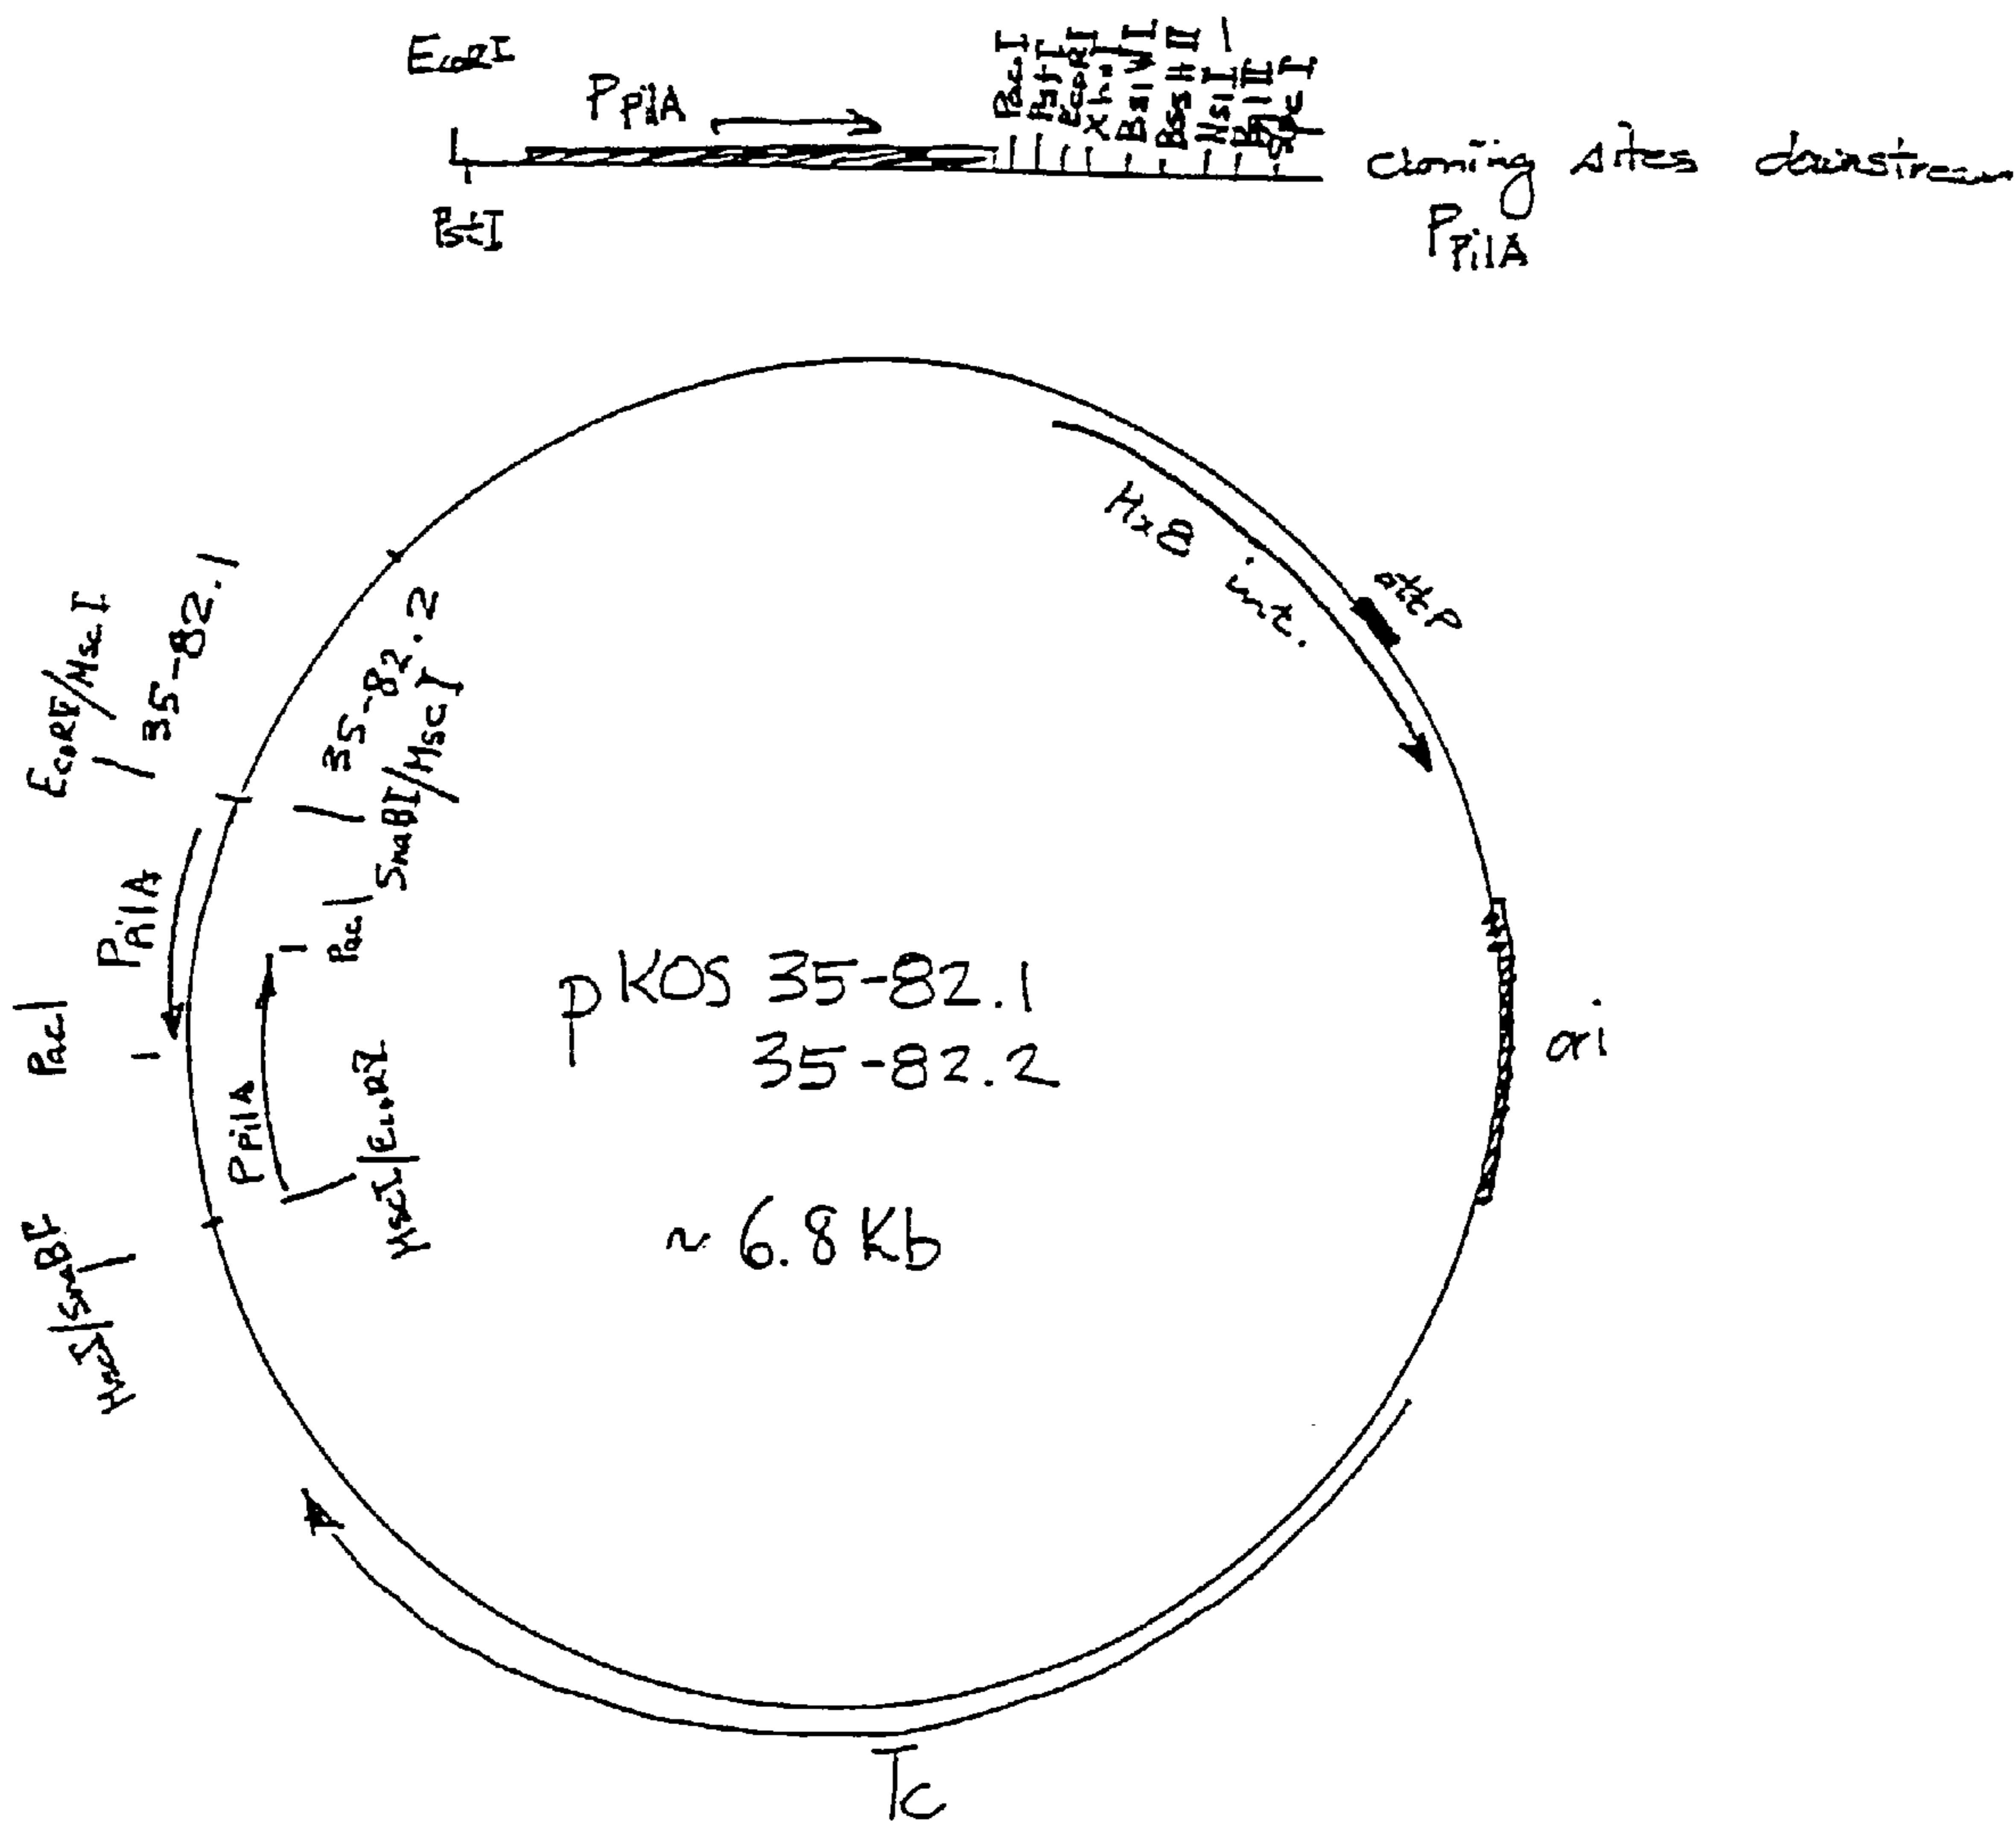 EcoRI
PPilA
PacI
PstI
EcoRI
BsiWI
BssHII
NsiI
cloning sites downstream
PPilA
PstI
Mx8 int.
attP
EcoRV/MscI
35-82.1
35-82.2
SnaBI/MscI
PPilA
PacI
PacI
PPilA
MscI/EcoRV
MscI/SnaBI
pKOS 35-82.1
35-82.2
~ 6.8 Kb
ori
Tc